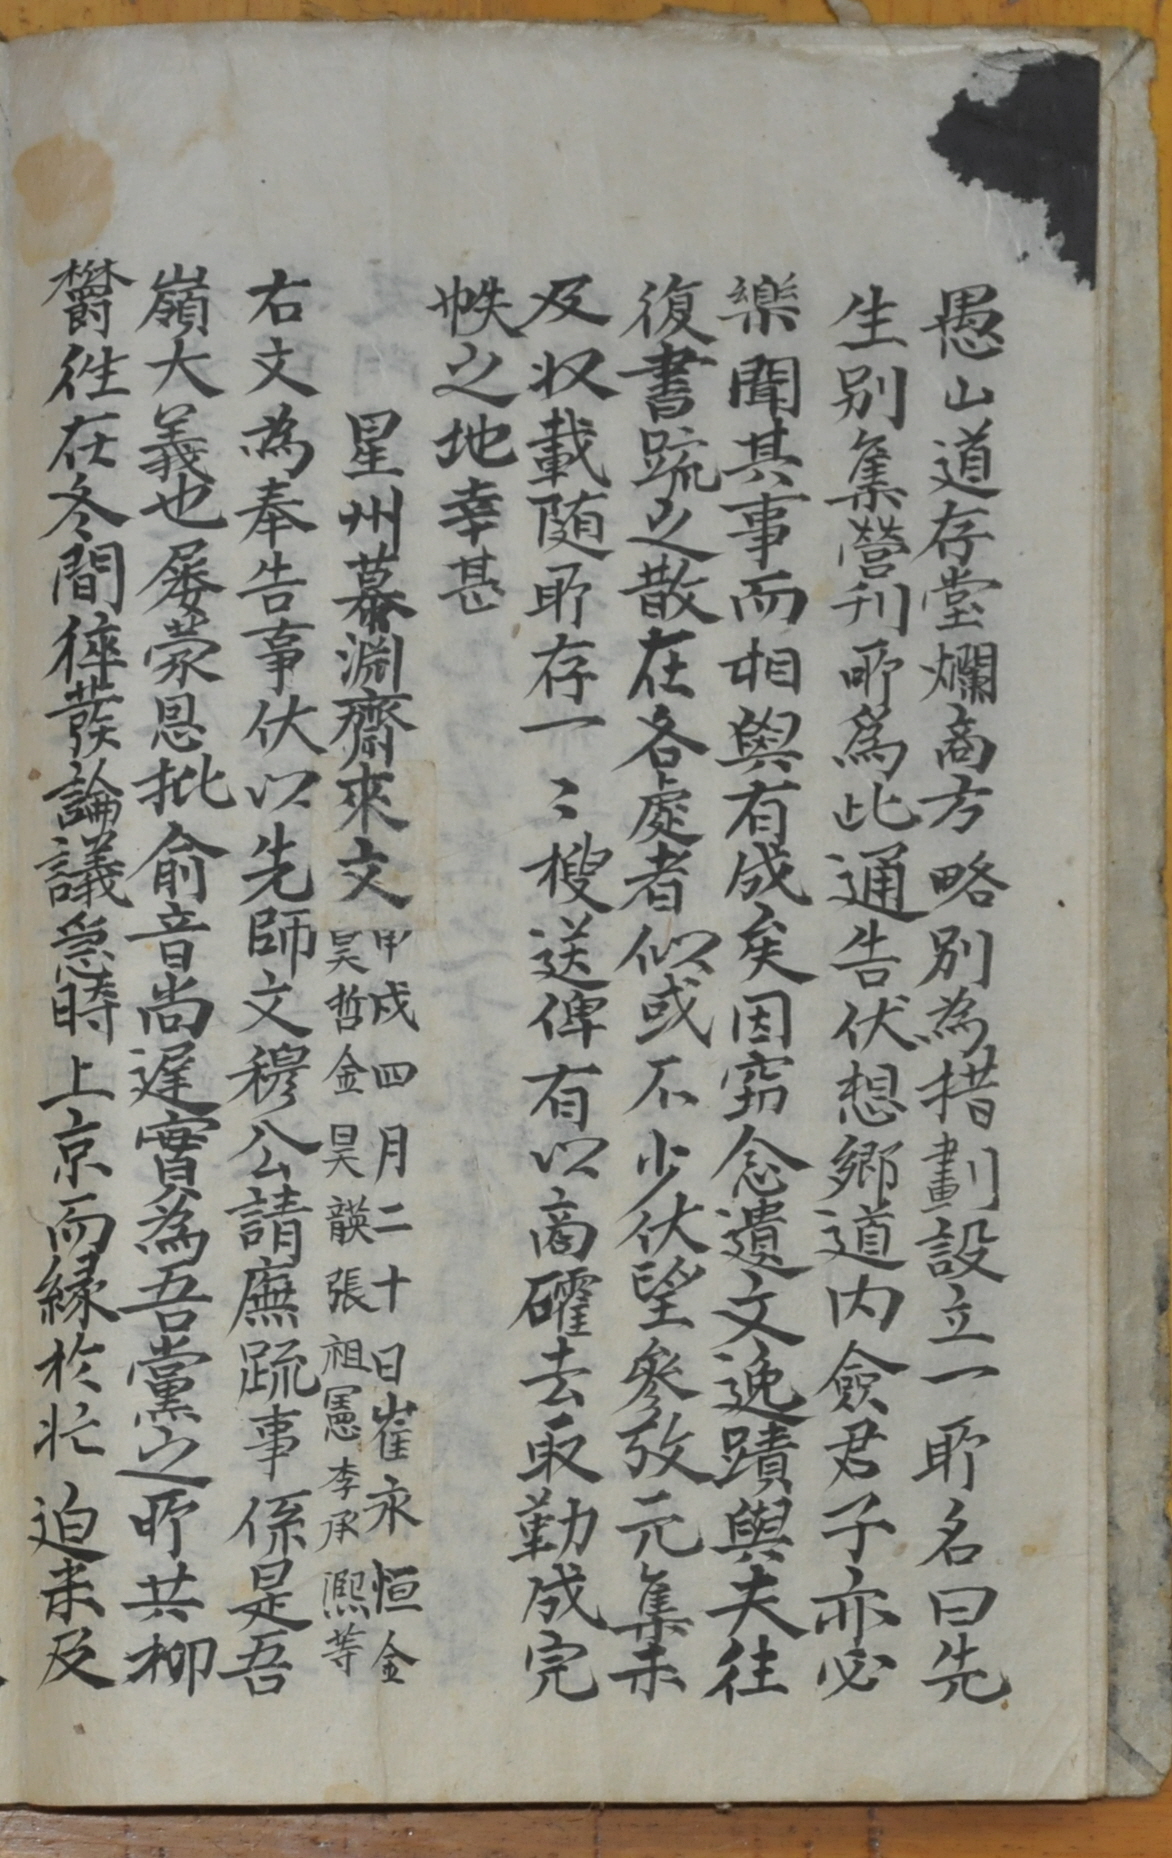 愚山道存堂爛商方略別為措劃設立一所名曰先
生別集營刊所爲此通告伏想鄉道內僉君子亦必
樂聞其事而相與有成矣因窃念遺文逸蹟與夫往
復書䟽之散在各處者似或不少伏望參攷元集未
及収載随所存一〻搜送俾有以商確去取勤成完
帙之地幸甚
星州慕淵齋來文
甲戌四月二十日崔永恒金
昊哲金昊韺張祖憲李承熙等
右文為奉告事伏以先師文穆公請廡疏事係是吾
嶺大義也屡蒙恩批俞音尚遅實為吾黨之所共柳
欝徃在冬間倅蕟論議急時上京而縁於忙迫未及